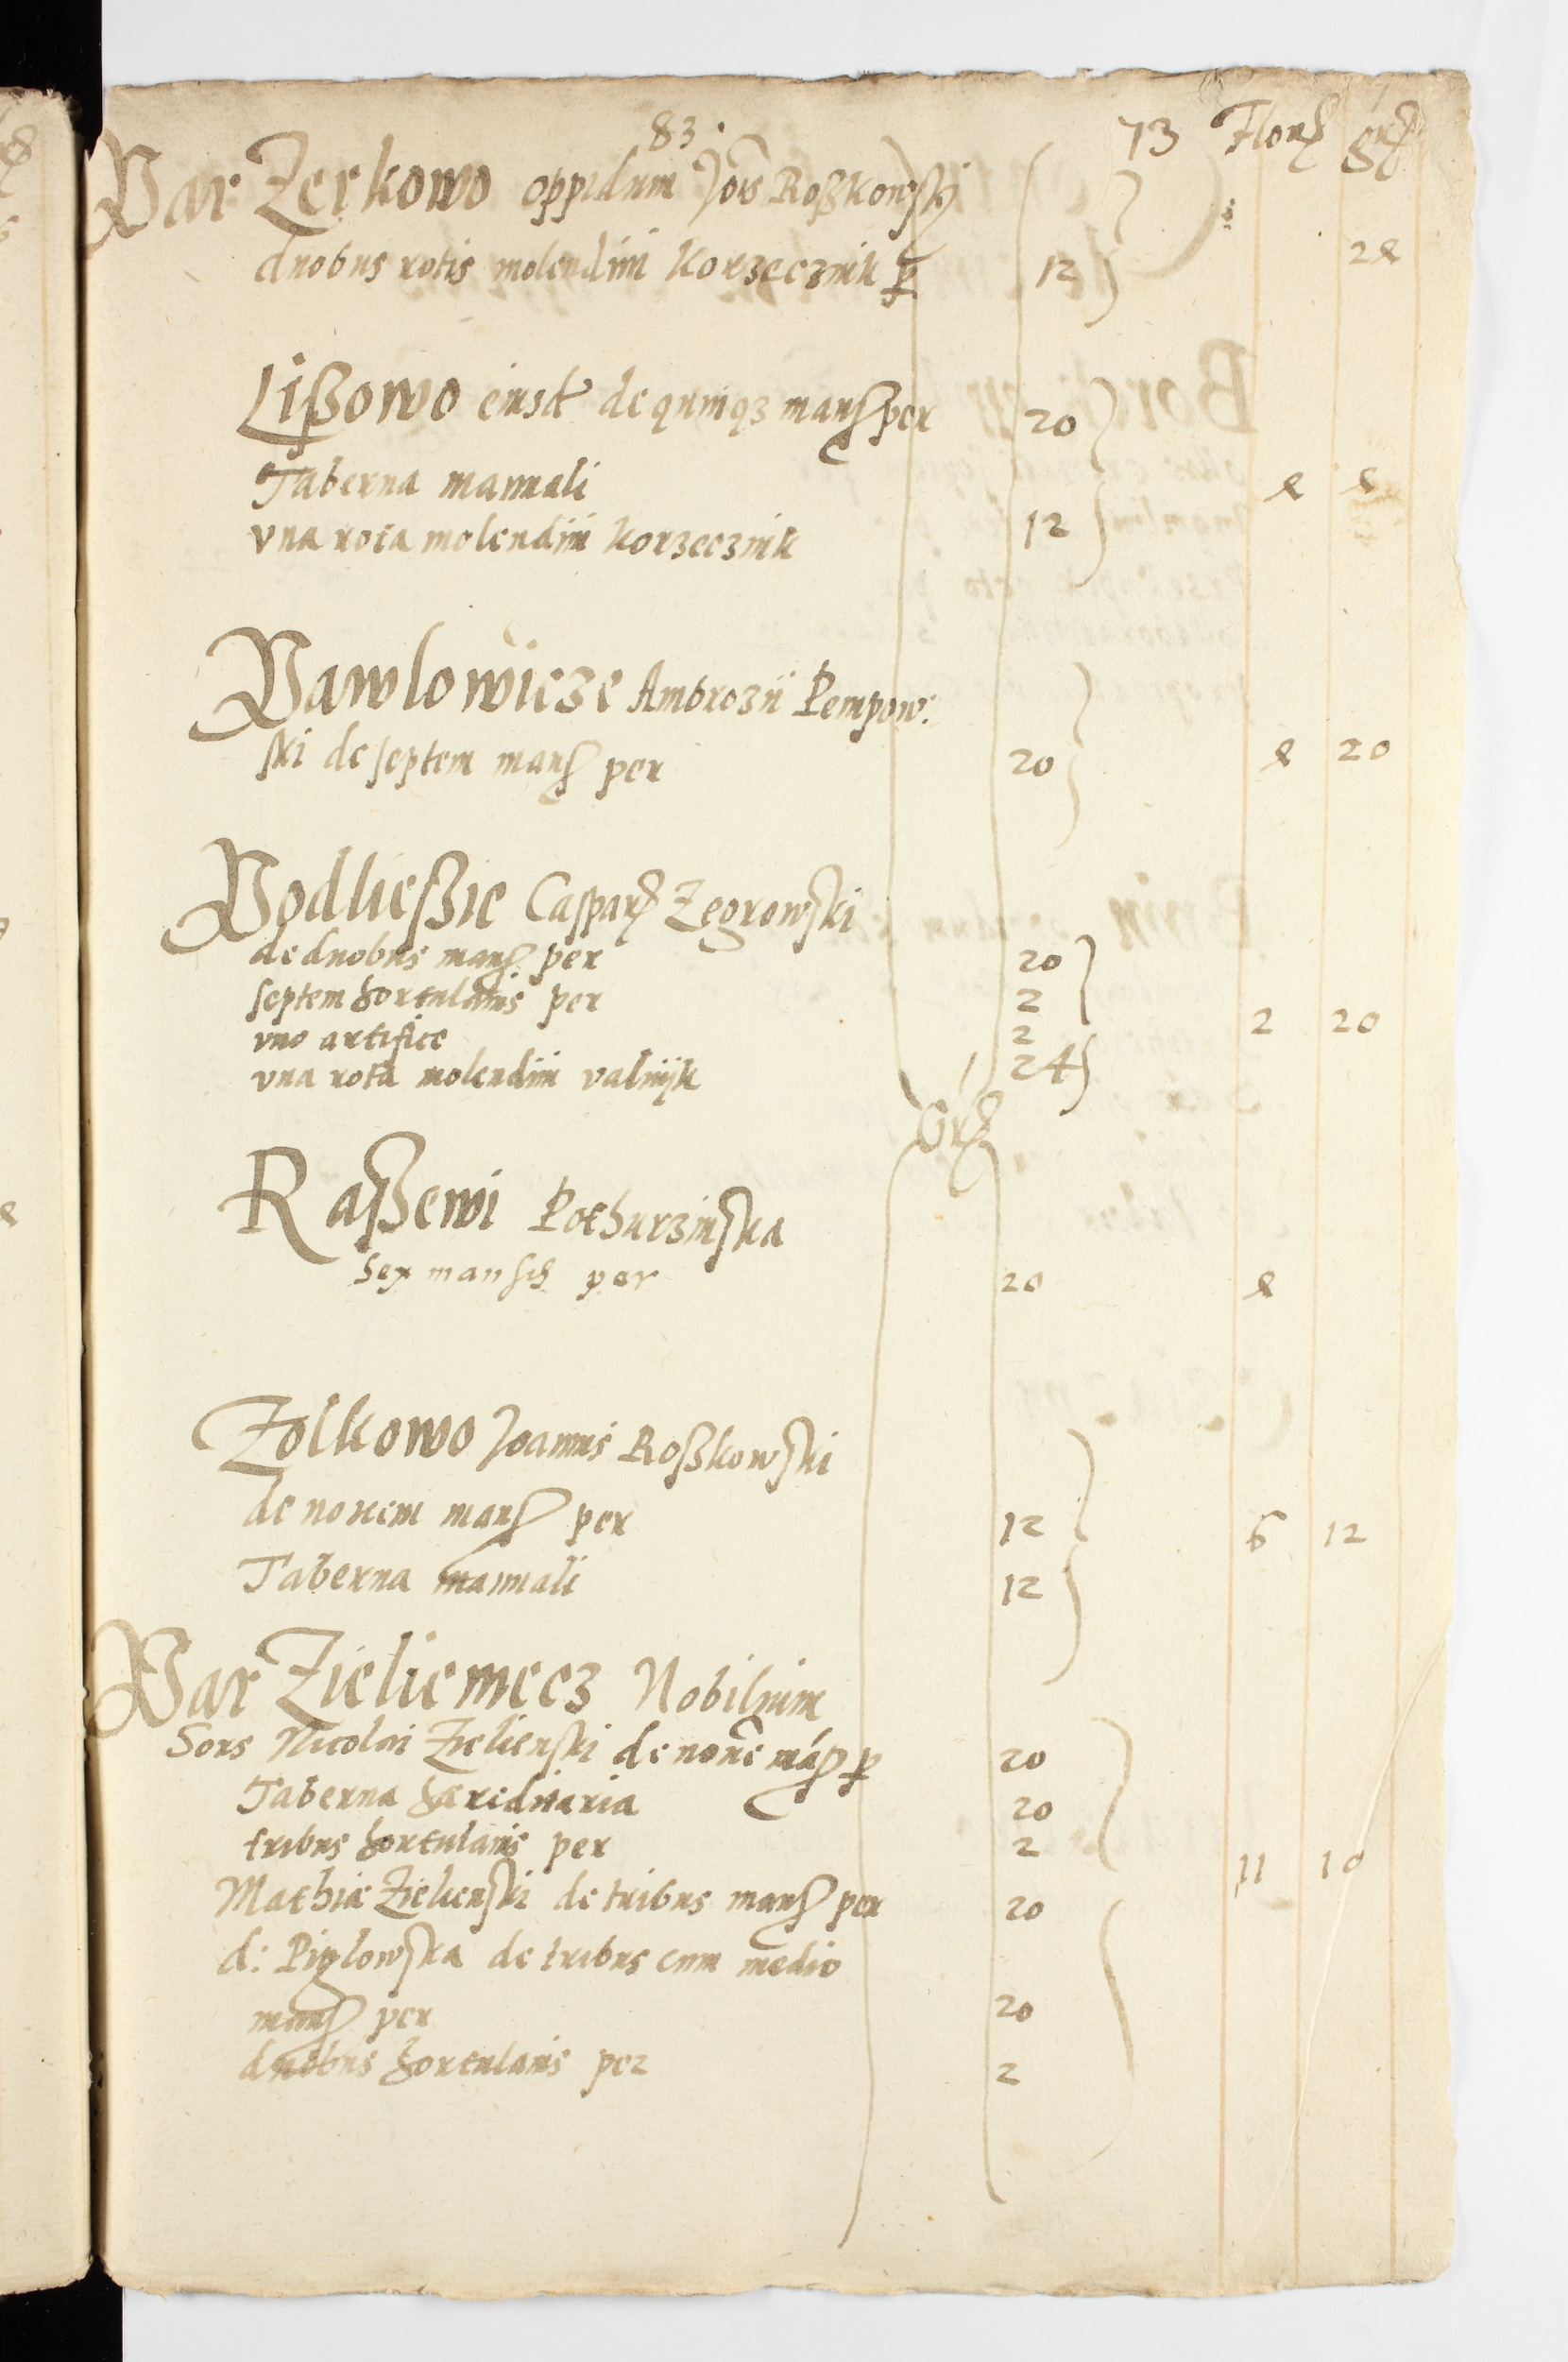 83. 73 Flor gr
Par Zerkowo oppidum Jois Roßkowskj
duobus rotis molendini korzecznik p 12 24
Lißowo eiusd de quinq3 mans per 20
Taberna mannali 4 4
vna rota molendini korzecznik 12
Pawlowicze Ambrozii Pempow:
ski de septem mans per 20 4 20
Podließie Caspar Zegrowski
de duobus mans per 20
septem hortulanis per 2
vno artifice 2 2 20
vna rota molendini valnijk 24
Gr
Raßewi Pothurzinska
Sex mansis per 20 4
Zolkowo Joannis Roßkowski
de nouem mans per 12 6 12
Taberna mannali 12
Par Zieliemecz Nobilium
Sors Nicolai Zielienski de noue mas p 20
Taberna hæreditaria 20
tribus hortulanis per 2
Mathiæ Zielienski de tribus mans per 20 11 10
d: Piglowska de tribus cum medio
mans per 20
duobus hortulanis per 2